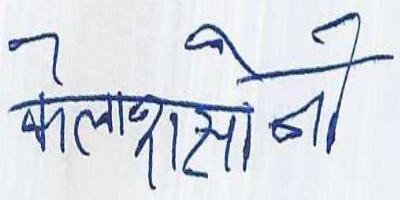 कैलाश सोनी